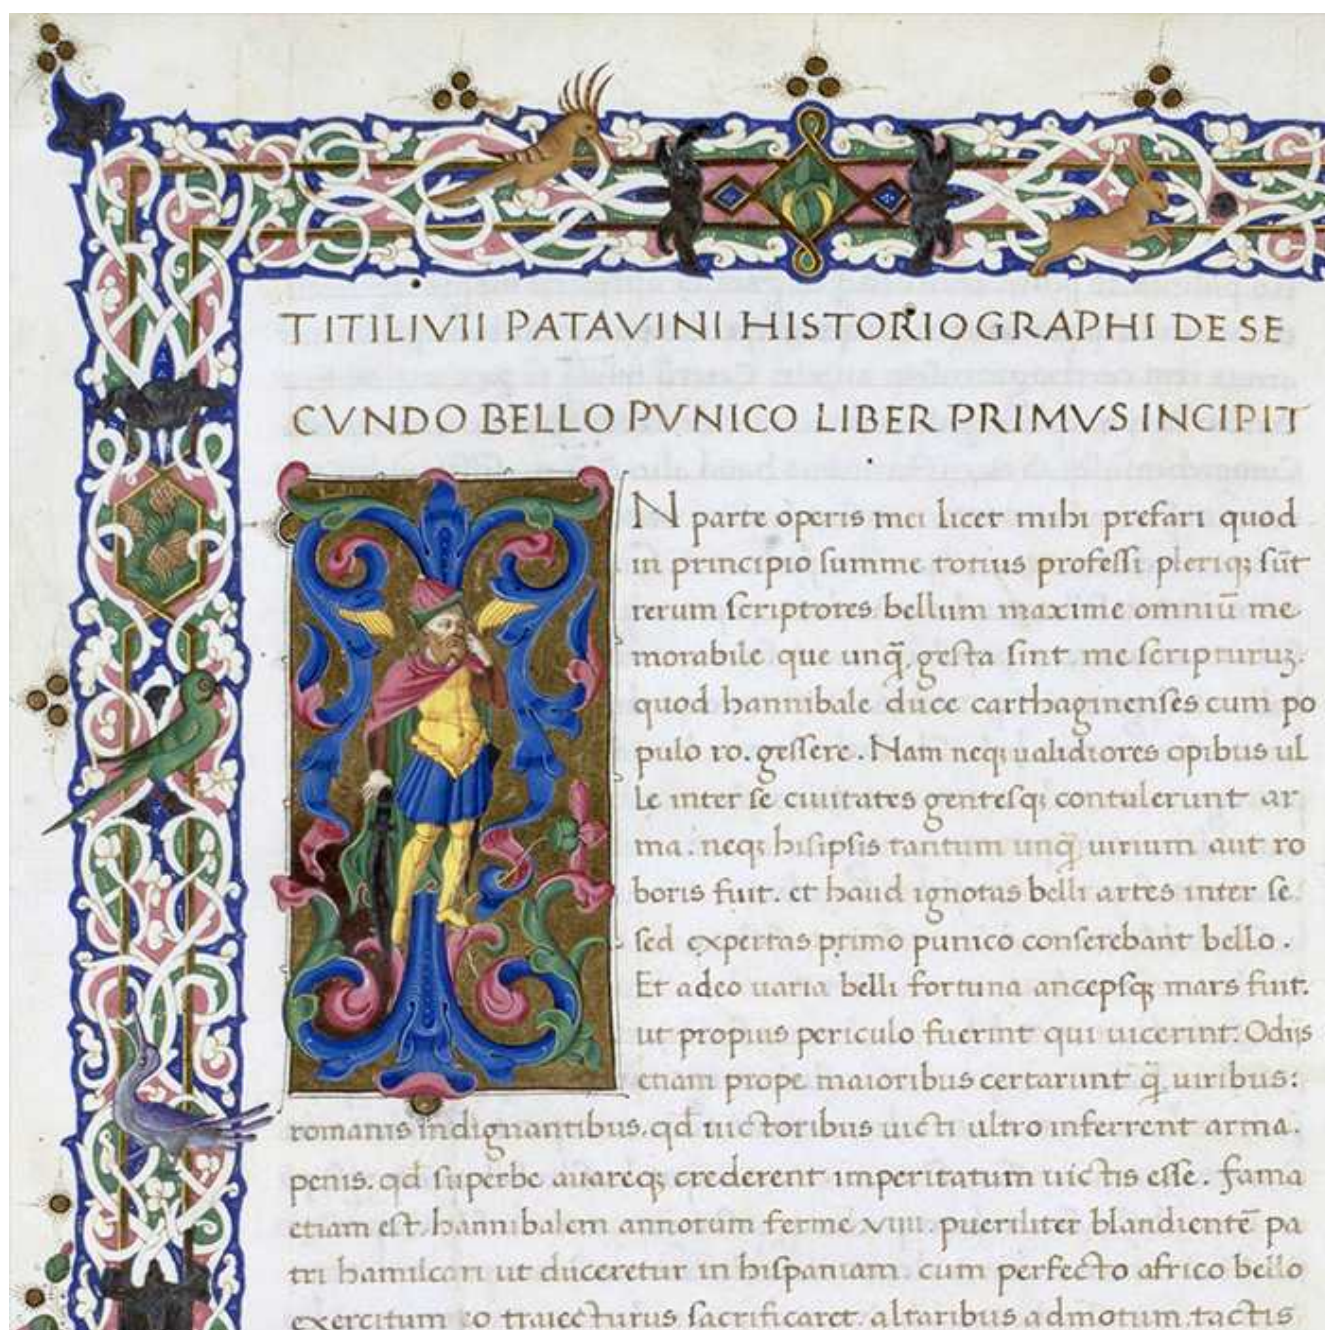 TITI LIVII PATAVINI HISTORIOGRAPHI DE SE
CVNDO BELLO PVNICO LIBER PRIMVS INCIPIT
IN parte operis mei licet mihi prefari quod
in principio summe totius professi pleriq; sūt
rerum scriptores bellum maxime omniū me
morabile que unq̃ gesta sint me scripturuz.
quod hannibale duce carthaginenses cum po
pulo ro. gessere. Nam neq; ualidiores opibus ul
le inter se ciuitates gentesq; contulerunt ar
ma. neq; hisipsis tantum unq̃ uirium aut ro
boris fuit. et haud ignotas belli artes inter se.
sed expertas primo punico conserebant bello.
Et adeo uaria belli fortuna ancepsq; mars fuit.
ut propius periculo fuerint qui uicerint. Odijs
etiam prope maioribus certarunt q̃ uiribus:
romanis indignantibus. qd uictoribus uicti ultro inferrent arma.
penis. qd superbe auareq; crederent imperitatum uictis esse. fama
etiam est. hannibalem annorum ferme .viiii. pueriliter blandientē pa
tri hamilcari ut duceretur in hispaniam. cum perfecto africo bello
exercitum eo traiecturus sacrificaret. altaribus admotum tactis